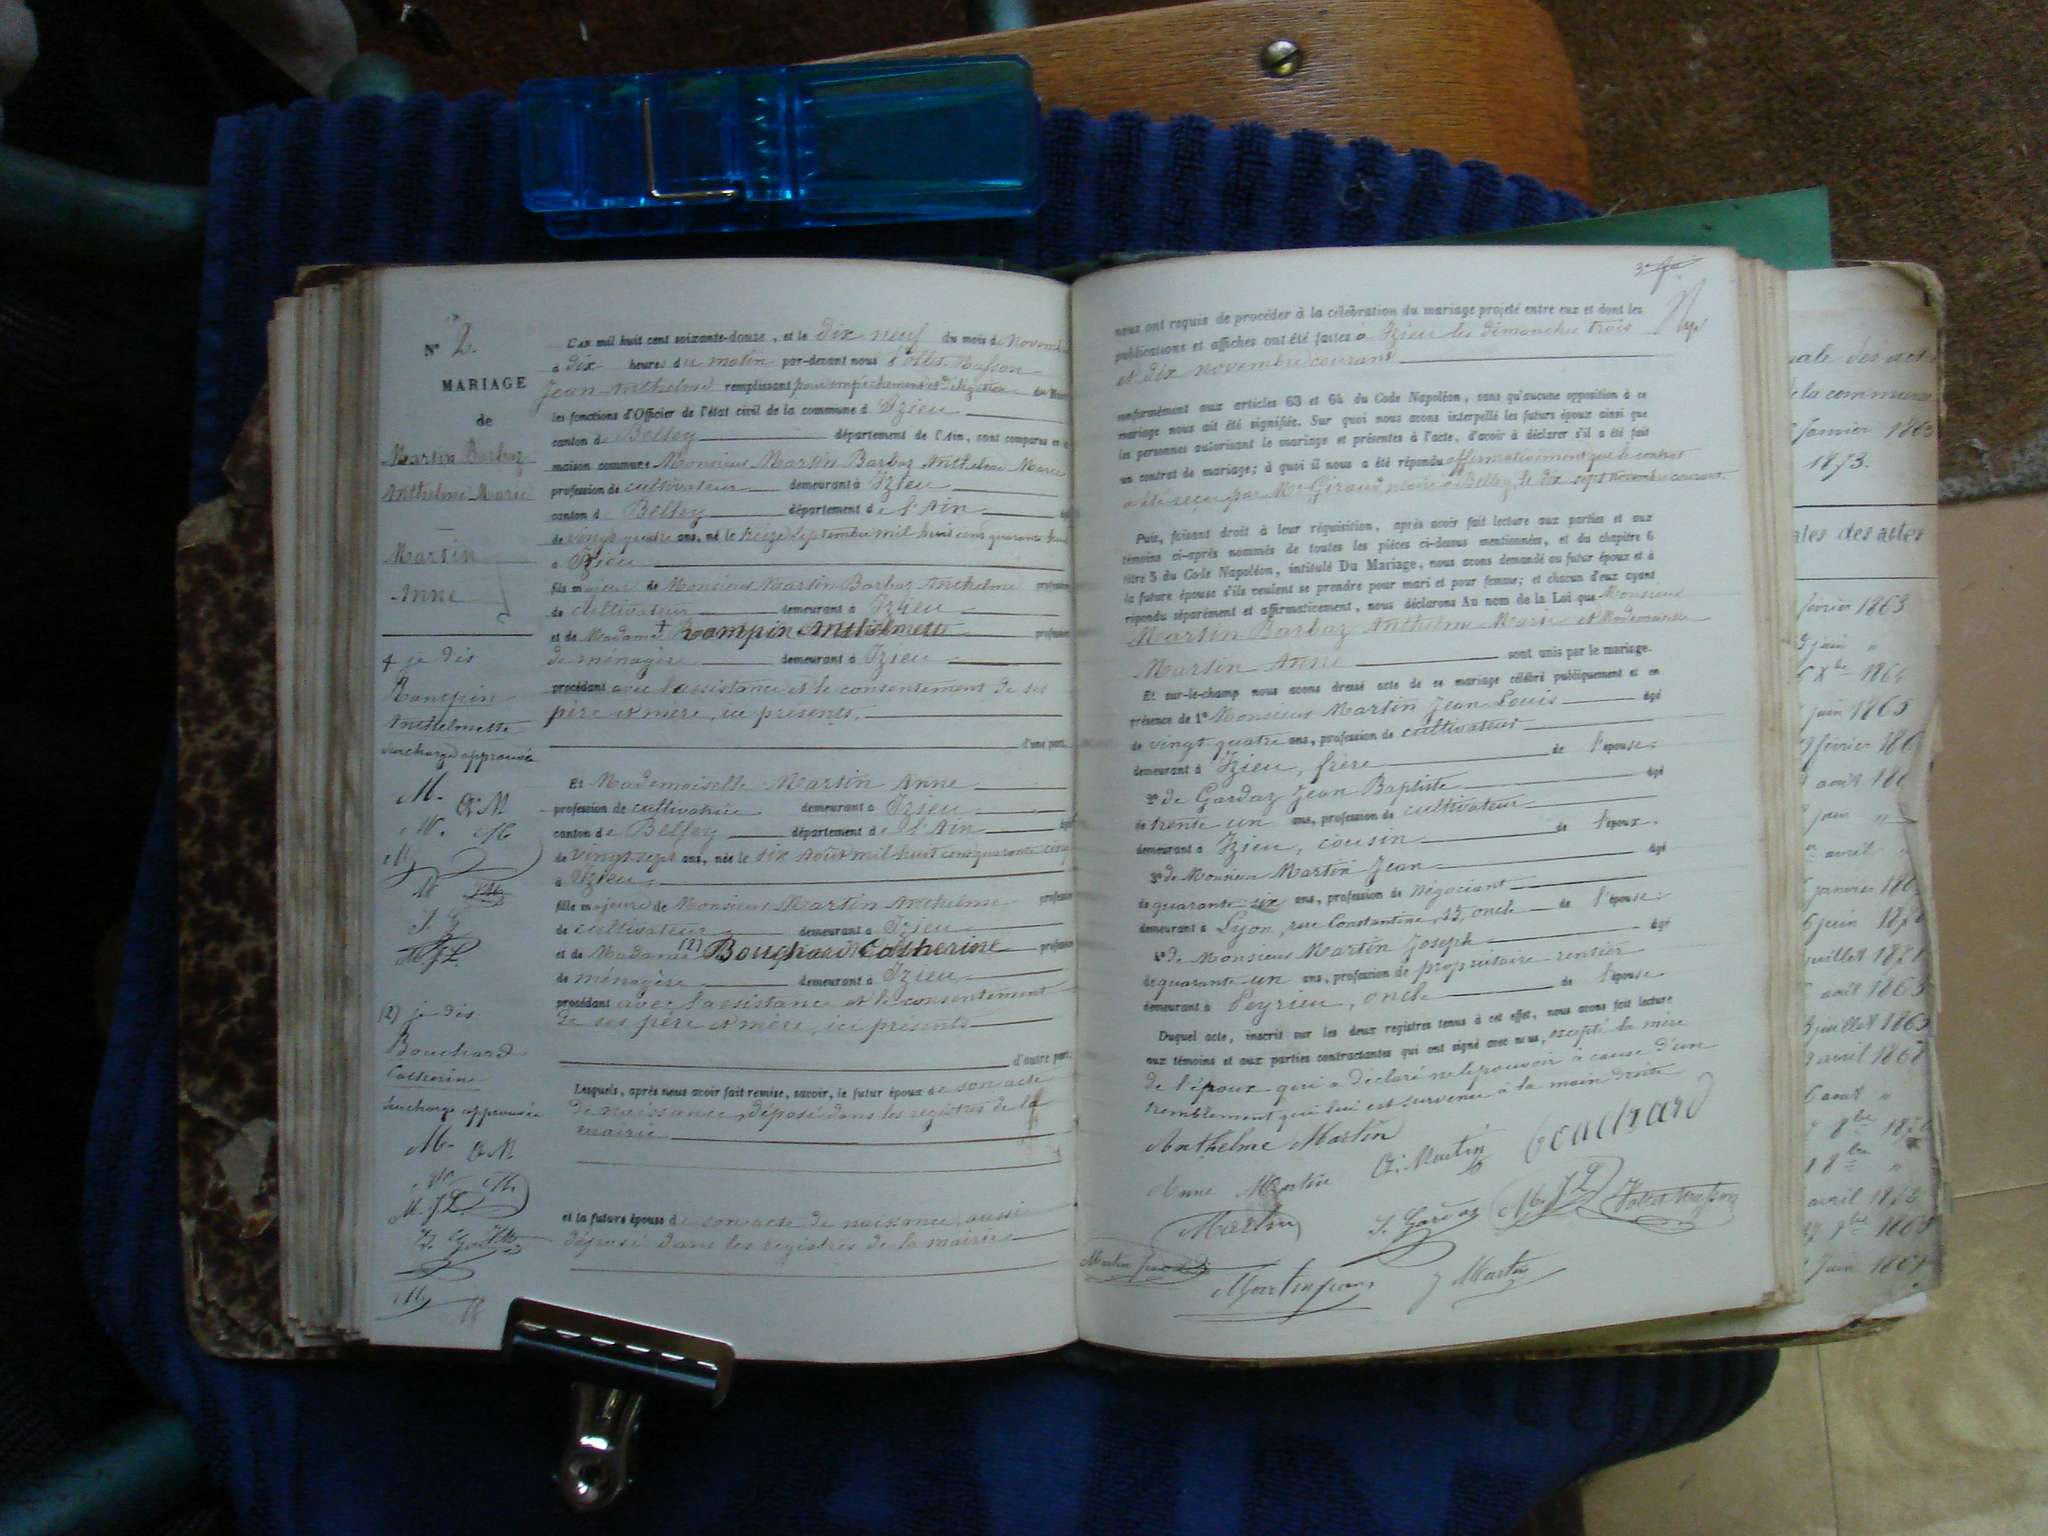 N° 2
MARIAGE
de
Martin Barbaz
Anthelme Marie
Martin
Anne
je dis
Rampin
Anthelmette
surcharge approuvée
M. A.M
(2) je dis
Bouchard
Catherine
surcharge approuvée
M. A.M
L'an mil huit cent soixante-douze, et le dix neuf du mois de Novemb
à dix heures du matin par-devant nous Masson
Jean Anthelme remplissant par empêchement et délégation du Maire
les fonctions d'Officier de l'état civil de la commune d'Izieu
canton de Belley département de l'Ain, sont comparus en la
maison commune Monsieur Martin Barbaz Anthelme Marie
profession de cultivateur demeurant à Izieu
canton de Belley département de l'Ain âgé
de vingt quatre ans, né le treize Septembre mil huit cent quarante huit
à Izieu
fils majeur de Monsieur Martin Barbaz Anthelme profession
de cultivateur demeurant à Izieu
et de Madame Rampin Anthelmette profession
de ménagère demeurant à Izieu
procédant avec l'assistance et le consentement de ses
père et mère, ici présents,
d'une part.
Et Mademoiselle Martin Anne
profession de cultivatrice demeurant à Izieu
canton de Belley département de l'Ain âgée
de vingt sept ans, née le six Août mil huit cent quarante cinq
à Izieu
fille majeure de Monsieur Martin Anthelme profession
de cultivateur demeurant à Izieu
et de Madame (2) Bouchard Catherine profession
de ménagère demeurant à Izieu
procédant avec l'assistance et le consentement
de ses père et mère, ici présents
d'autre part.
Lesquels, après nous avoir fait remise, savoir, le futur époux de son acte
de naissance, déposé dans les registres de la
mairie
et la future épouse de son acte de naissance, aussi
déposé dans les registres de la mairie
nous ont requis de procéder à la célébration du mariage projeté entre eux et dont les
publications et affiches ont été faites à Izieu les dimanches trois
et dix novembre courant
conformément aux articles 63 et 64 du Code Napoléon, sans qu'aucune opposition à ce
mariage nous ait été signifiée. Sur quoi nous avons interpellé les futurs époux ainsi que
les personnes autorisant le mariage et présentes à l'acte, d'avoir à déclarer s'il a été fait
un contrat de mariage; à quoi il nous a été répondu affirmativement que le contrat
a été reçu par Me Giraud notaire à Belley, le dix sept Novembre courant.
Puis, faisant droit à leur réquisition, après avoir fait lecture aux parties et aux
témoins ci-après nommés de toutes les pièces ci-dessus mentionnées, et du chapitre 6
titre 5 du Code Napoléon, intitulé Du Mariage, nous avons demandé au futur époux et à
la future épouse s'ils veulent se prendre pour mari et pour femme; et chacun d'eux ayant
répondu séparément et affirmativement, nous déclarons Au nom de la Loi que Monsieur
Martin Barbaz Anthelme Marie et Mademoiselle
Martin Anne sont unis par le mariage.
Et sur-le-champ nous avons dressé acte de ce mariage célébré publiquement et en
présence de 1° Monsieur Martin Jean Louis âgé
de vingt quatre ans, profession de cultivateur
demeurant à Izieu, frère de l'épouse.
2° de Gardaz Jean Baptiste âgé
de trente un ans, profession de cultivateur
demeurant à Izieu, cousin de l'époux.
3° de Monsieur Martin Jean âgé
de quarante six ans, profession de négociant
demeurant à Lyon, rue Constantine, 15, oncle de l'épouse.
4° de Monsieur Martin Joseph âgé
de quarante un ans, profession de propriétaire rentier
demeurant à Peyrieu, oncle de l'épouse
Duquel acte, inscrit sur les deux registres tenus à cet effet, nous avons fait lecture
aux témoins et aux parties contractantes qui ont signé avec nous, excepté la mère
de l'époux qui a déclaré ne le pouvoir à cause d'un
tremblement qui lui est survenu à la main droite
Anthelme Martin
Anne Martin A. Martin Bouchard
Martin J. Gardaz M. J L
J Martin
1873.
des actes
février 1863
juin "
1864
juin 1865
août 1863
juillet 1865
avril 1868
août "